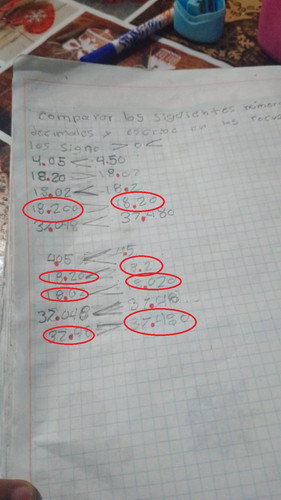 comparar los siguientes
decimales y escribe en las
los signo > o <
4.05 < 4.50
18.20 > 18.02
18.02 < 18.2
18.200 18.20
37.048 < 37.480
4.05 < 4.5
18.20 8.2
18.02 8.020
37.048 < 37.48
37.48 37.480